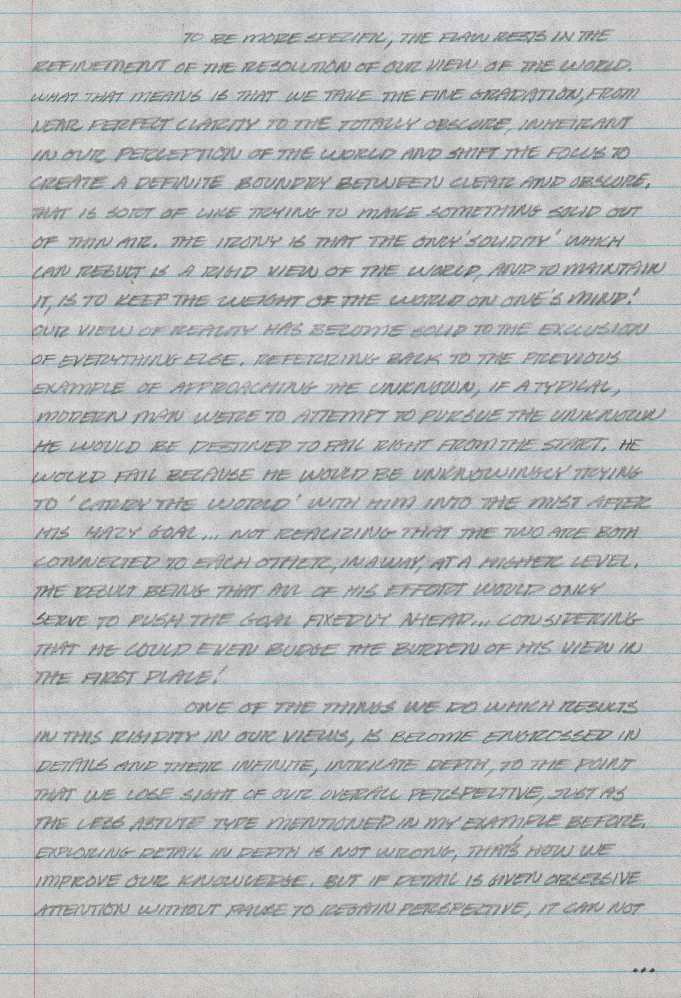 TO BE MORE SPECIFIC, THE FLAW RESTS IN THE
REFINEMENT OF THE RESOLUTION OF OUR VIEW OF THE WORLD.
WHAT THAT MEANS IS THAT WE TAKE THE FINE GRADATION, FROM
NEAR PERFECT CLARITY TO THE TOTALLY OBSCURE, INHEIRANT
IN OUR PERCEPTION OF THE WORLD AND SHIFT THE FOCUS TO
CREATE A DEFINITE BOUNDRY BETWEEN CLEAR AND OBSCURE.
THAT IS SORT OF LIKE TRYING TO MAKE SOMETHING SOLID OUT
OF THIN AIR. THE IRONY IS THAT THE ONLY 'SOLIDITY' WHICH
CAN RESULT IS A RIGID VIEW OF THE WORLD, AND TO MAINTAIN
IT, IS TO KEEP THE WEIGHT OF THE WORLD ON ONE'S MIND!
OUR VIEW OF REALITY HAS BECOME SOLID TO THE EXCLUSION
OF EVERYTHING ELSE. REFERRING BACK TO THE PREVIOUS
EXAMPLE OF APPROACHING THE UNKNOWN, IF A TYPICAL,
MODERN MAN WERE TO ATTEMPT TO PURSUE THE UNKNOWN
HE WOULD BE DESTINED TO FAIL RIGHT FROM THE START. HE
WOULD FAIL BECAUSE HE WOULD BE UNKNOWINGLY TRYING
TO 'CARRY THE WORLD' WITH HIM INTO THE MIST AFTER
HIS HAZY GOAL... NOT REALIZING THAT THE TWO ARE BOTH
CONNECTED TO EACH OTHER, IN A WAY, AT A HIGHER LEVEL.
THE RESULT BEING THAT ALL OF HIS EFFORT WOULD ONLY
SERVE TO PUSH THE GOAL FIXEDLY AHEAD... CONSIDERING
THAT HE COULD EVEN BUDGE THE BURDEN OF HIS VIEW IN
THE FIRST PLACE!
ONE OF THE THINGS WE DO WHICH RESULTS
IN THIS RIGIDITY IN OUR VIEWS, IS BECOME ENGROSSED IN
DETAILS AND THEIR INFINITE, INTRICATE DEPTH, TO THE POINT
THAT WE LOSE SIGHT OF OUR OVERALL PERSPECTIVE, JUST AS
THE LESS ASTUTE TYPE MENTIONED IN MY EXAMPLE BEFORE.
EXPLORING DETAIL IN DEPTH IS NOT WRONG, THAT'S HOW WE
IMPROVE OUR KNOWLEDGE. BUT IF DETAIL IS GIVEN OBSESSIVE
ATTENTION WITHOUT PAUSE TO REGAIN PERSPECTIVE, IT CAN NOT
...